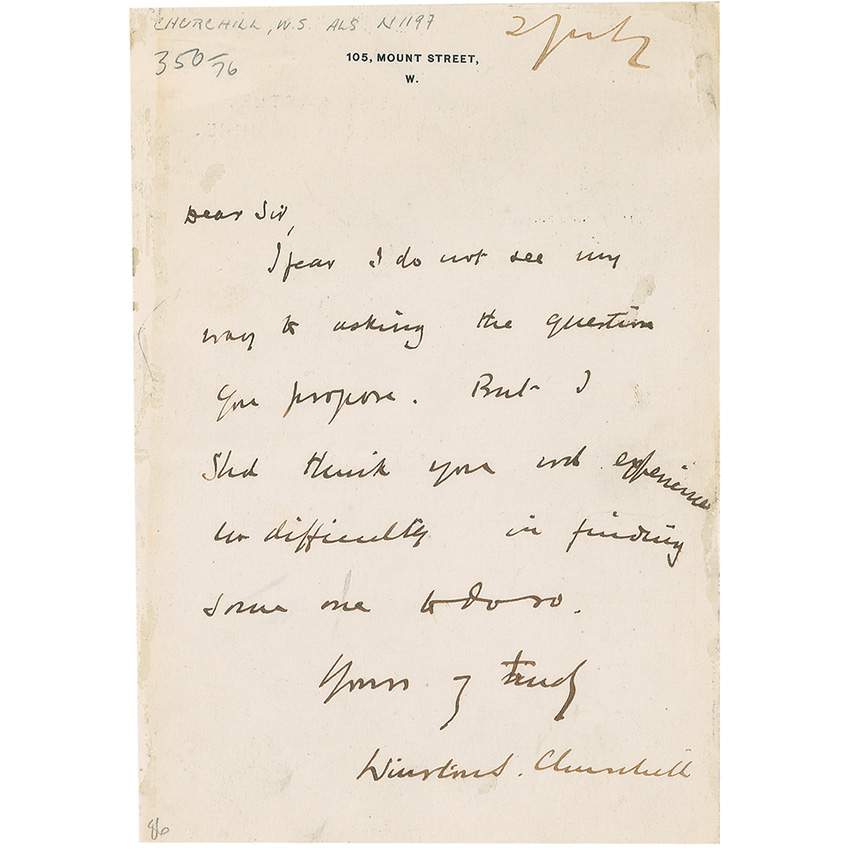 CHURCHILL, W.S. ALS N1197
350/76
2 July
105, MOUNT STREET,
W.
Dear Sir,
I fear I do not see my
way to asking the question
you propose. But I
Shd think you wd experience
no difficulty in finding
some one to do so.
Yours v truly
Winston S. Churchill